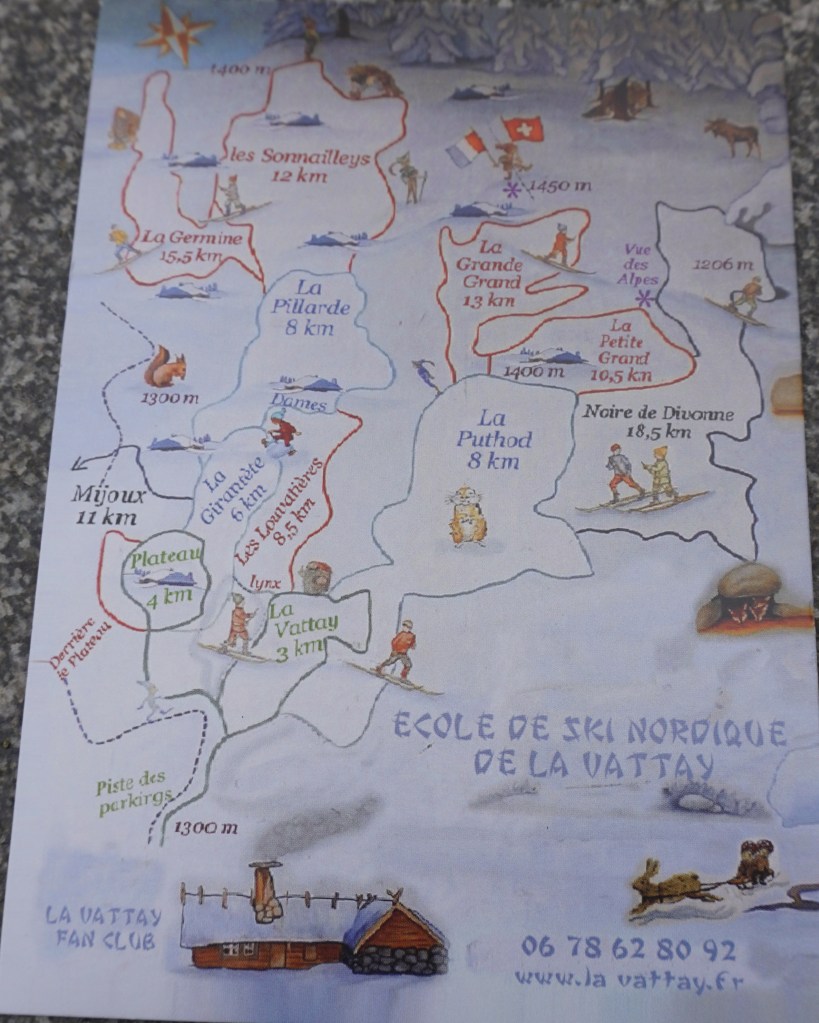 1400 m
les Sonnailleys
12 km
1450 m
La Germine
15,5 km
La
Grande
Grand
13 km
Vue
des
Alpes
1206 m
La
Pillarde
8 km
La
Petite
Grand
10,5 km
1400 m
1300 m
Dames
Noire de Divonne
18,5 km
La
Puthod
8 km
La
Girantète
6 km
Les Louvatières
8,5 km
Mijoux
11 km
Plateau
4 km
lynx
La
Vattay
3 km
Derrière
le Plateau
ECOLE DE SKI NORDIQUE
DE LA VATTAY
Piste des
parkings
1300 m
LA VATTAY
FAN CLUB
06 78 62 80 92
www.la vattay.fr